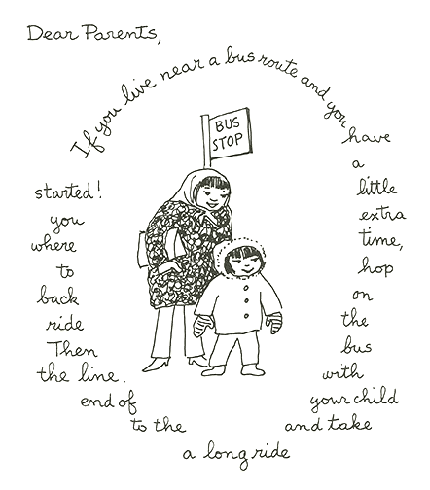 Dear Parents,
If you live near a bus route and you
have
a
little
extra
time,
hop
on
the
bus
with
your child
and take
a long ride
to the
end of
the line.
Then
ride
back
to
where
you
started!
BUS
STOP